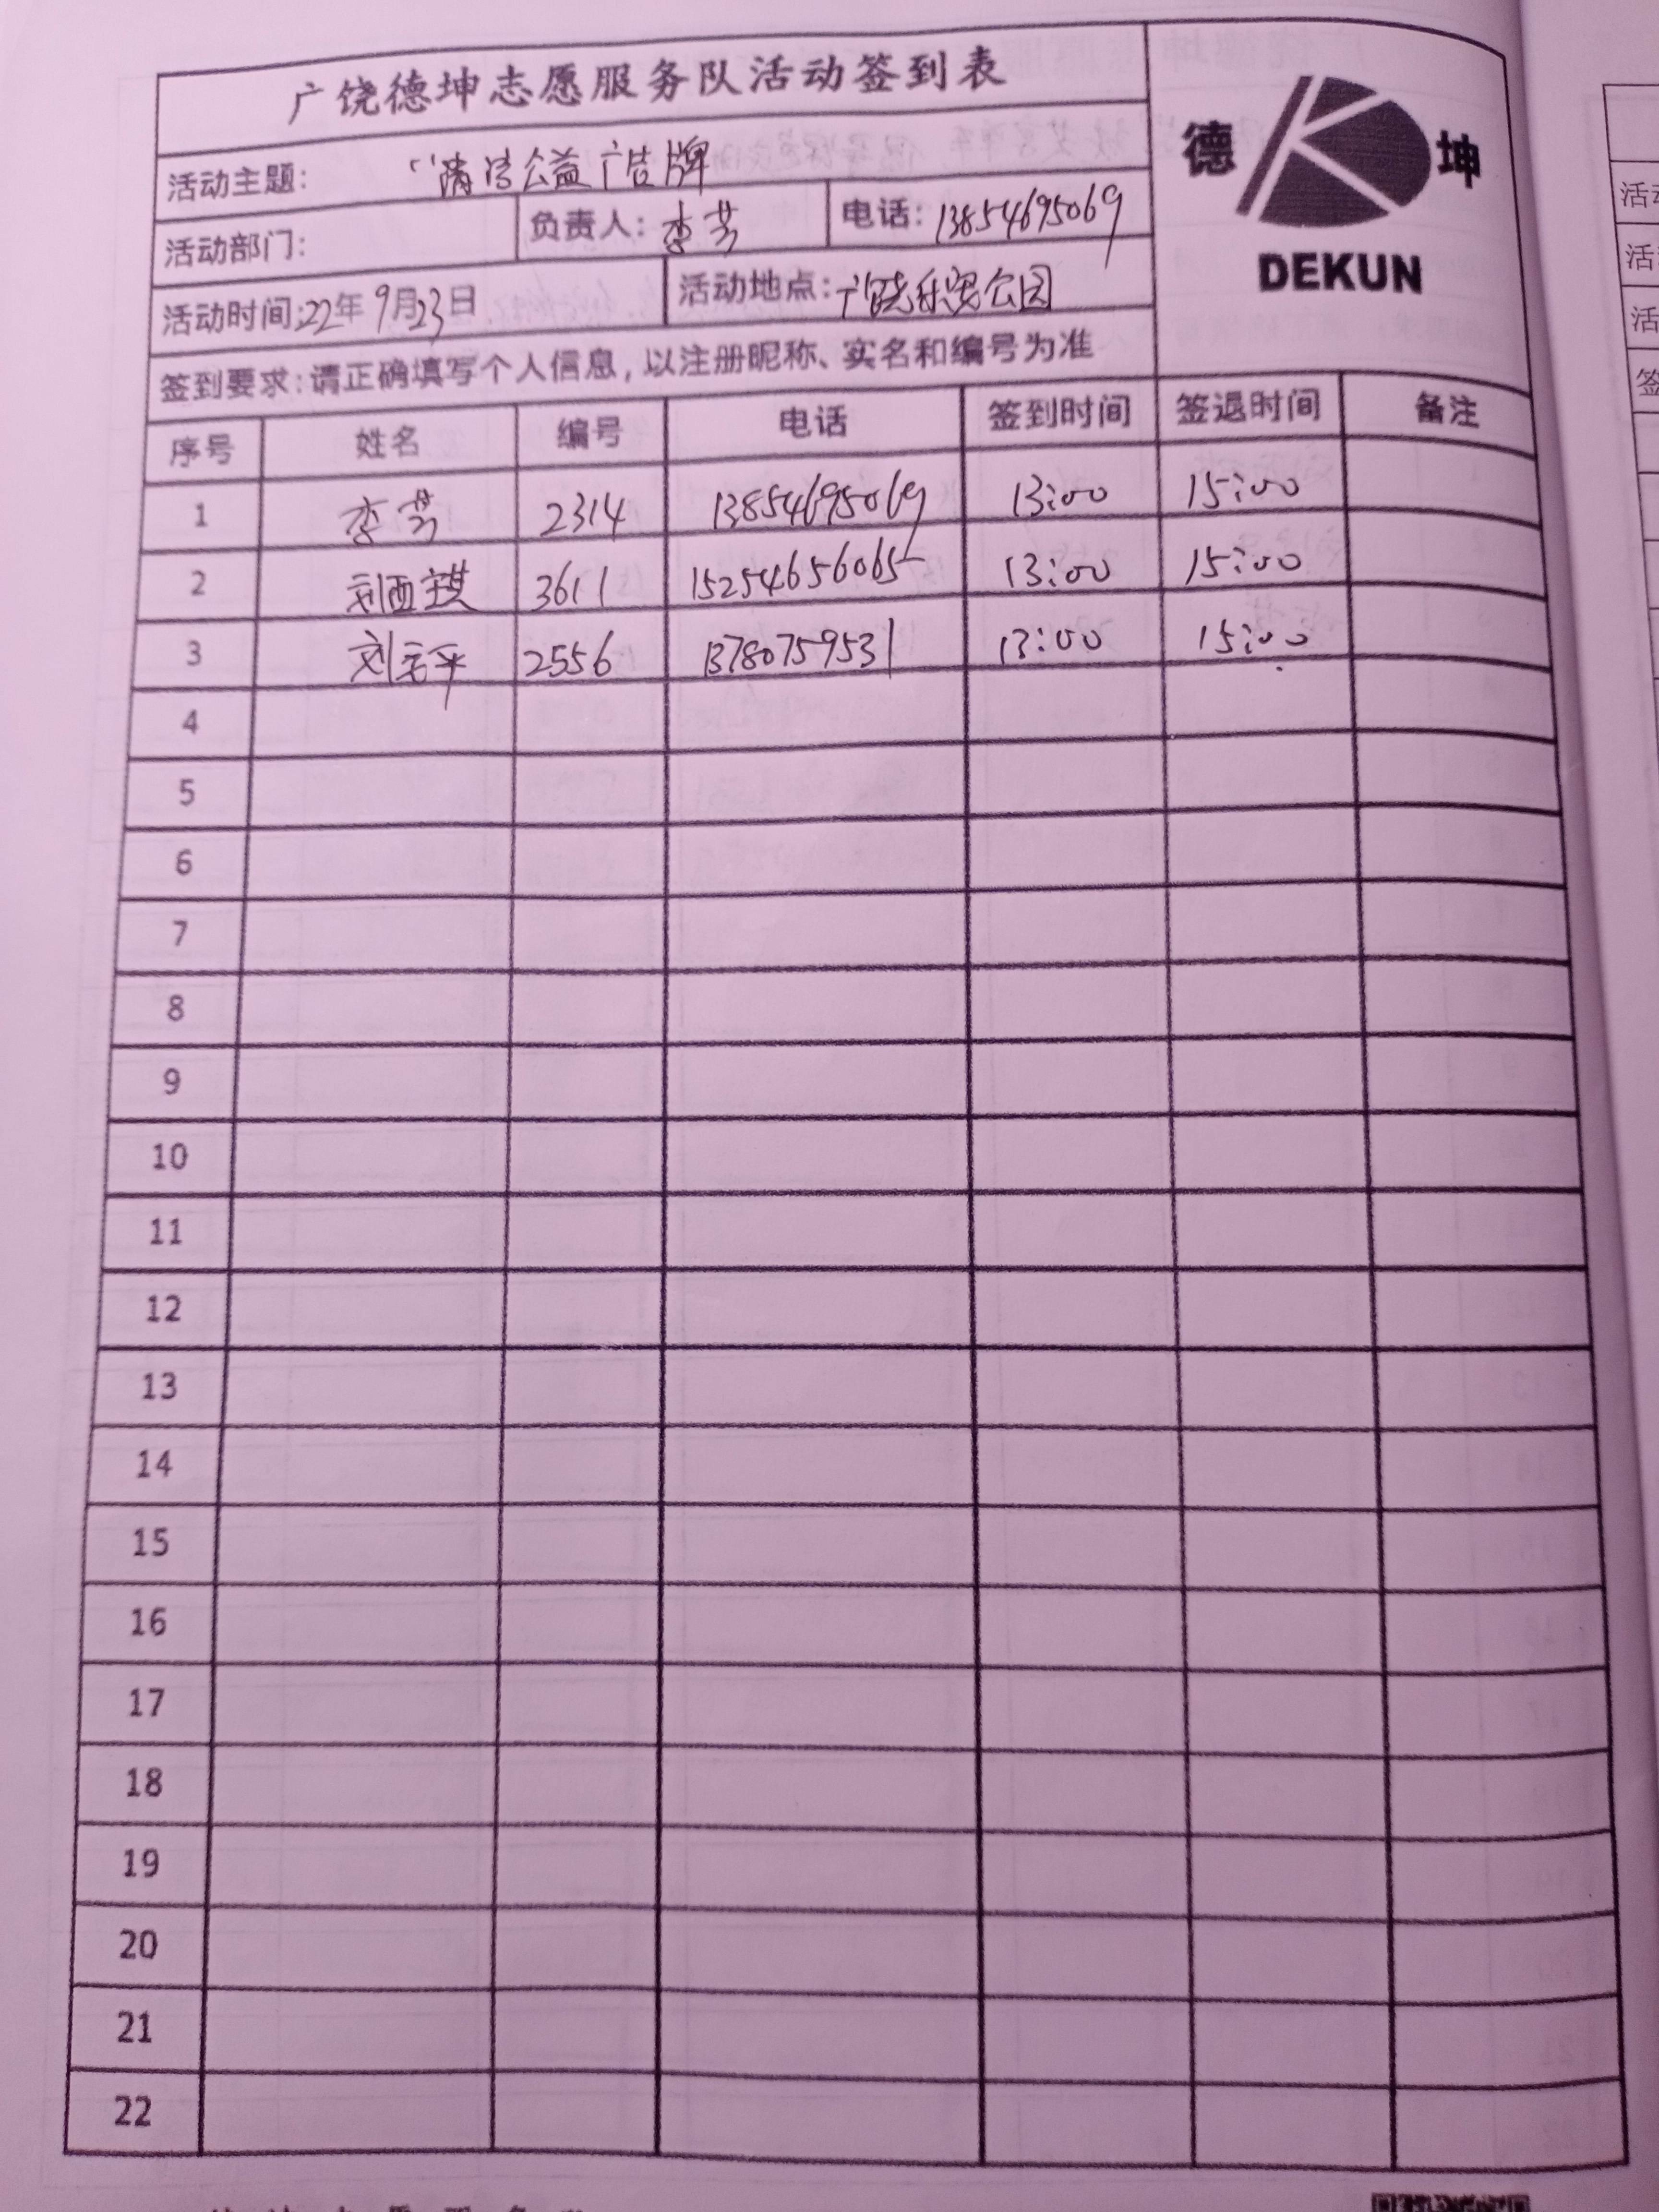 广饶德坤志愿服务队活动签到表
德 坤
DEKUN
活动主题: 清洁公益广告牌
活动部门: 负责人: 李芳 电话: 13854695069
活动时间: 22年9月23日 活动地点: 广饶乐安公园
签到要求: 请正确填写个人信息, 以注册昵称、实名和编号为准
序号 姓名 编号 电话 签到时间 签退时间 备注
1 李芳 2314 13854695069 13:00 15:00
2 刘西琪 3611 15254656065 13:00 15:00
3 刘 平 2556 13780759531 13:00 15:00
4
5
6
7
8
9
10
11
12
13
14
15
16
17
18
19
20
21
22